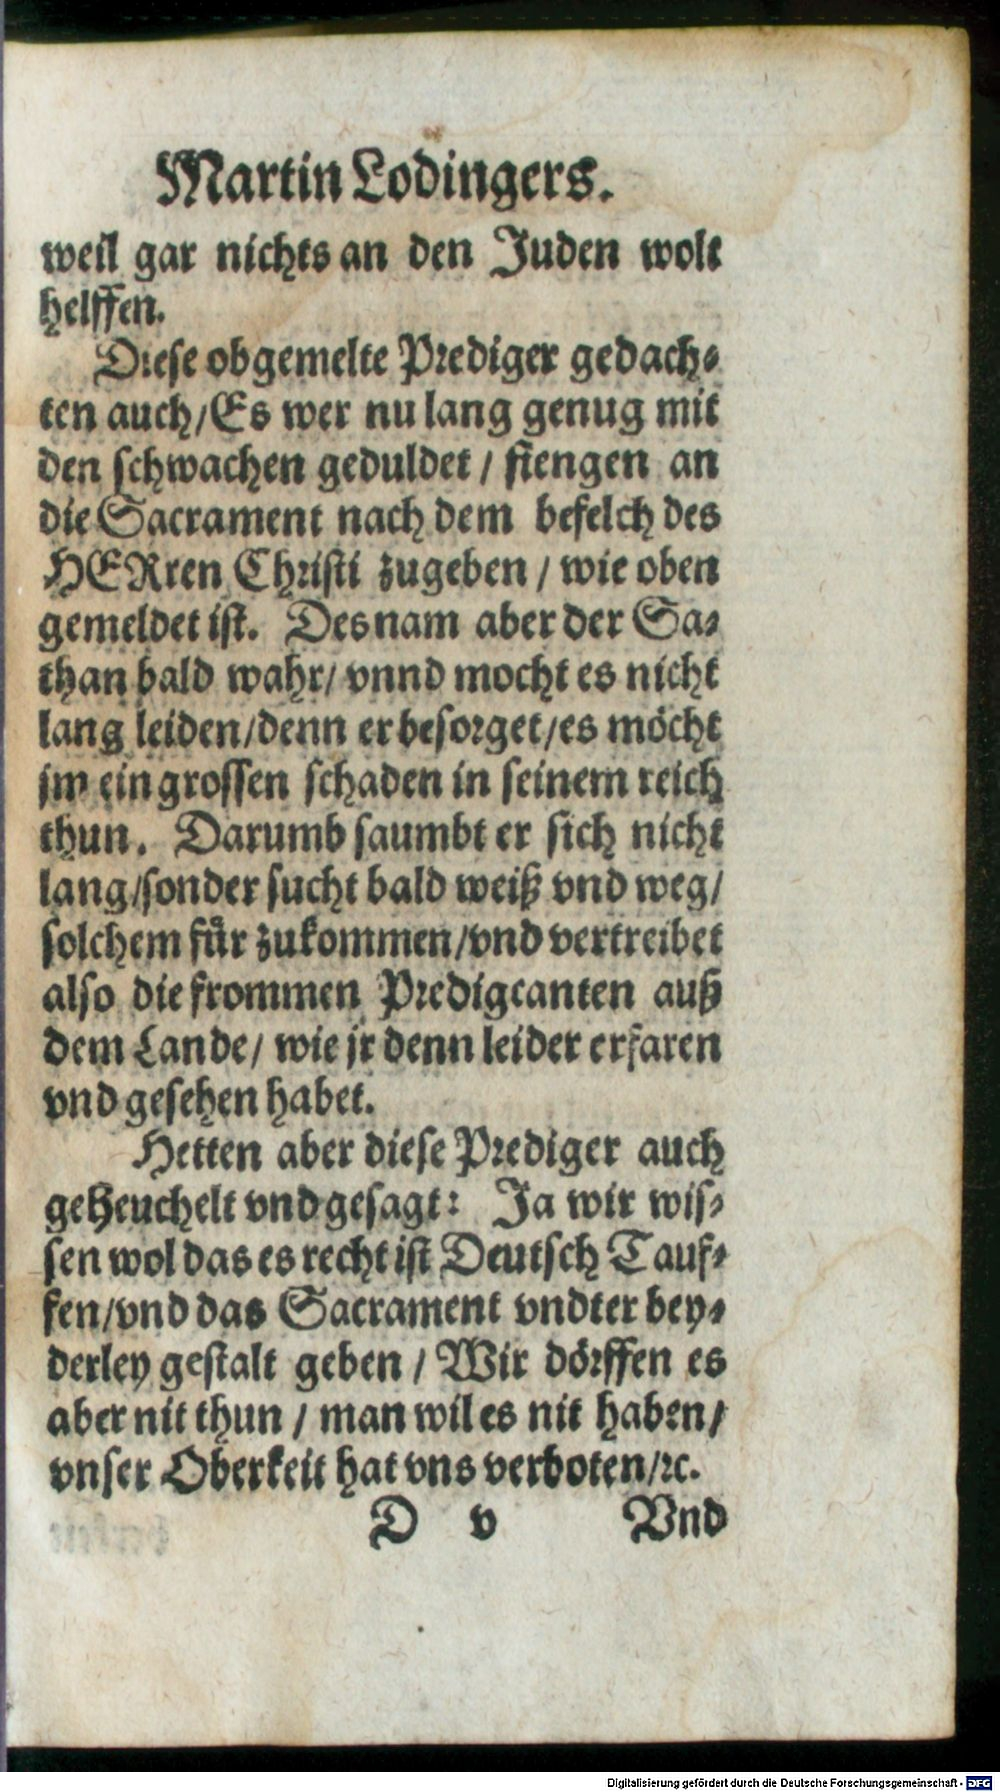 Martin Lodingers.
weil gar nichts an den Juden wolt
helffen.
Diese obgemelte Prediger gedach⸗
ten auch/Es wer nu lang genug mit
den schwachen geduldet / fiengen an
die Sacrament nach dem befelch des
HERren Christi zugeben / wie oben
gemeldet ist. Des nam aber der Sa⸗
than bald wahr/ vnnd mocht es nicht
lang leiden/denn er besorget/es möcht
jm ein grossen schaden in seinem reich
thun. Darumb saumbt er sich nicht
lang/sonder sucht bald weiß vnd weg/
solchem fuͤr zukommen/vnd vertreibet
also die frommen Predigcanten auß
dem Lande/ wie jr denn leider erfaren
vnd gesehen habet.
Hetten aber diese Prediger auch
geheuchelt vnd gesagt: Ja wir wis⸗
sen wol das es recht ist Deutsch Tauf⸗
fen/vnd das Sacrament vndter bey⸗
derley gestalt geben / Wir dörffen es
aber nit thun / man wil es nit haben/
vnser Oberkeit hat vns verboten/ꝛc.
D v Vnd
Digitalisierung gefördert durch die Deutsche Forschungsgemeinschaft - DFG